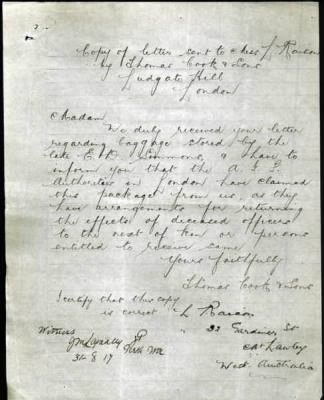 Copy of letter sent to Mrs L Rawson
by Thomas Cook & Sons
Ludgate Hill
London
Madam
We duly received your letter
regarding baggage stored by the
late E. K. Simmons, & have to
inform you that the A. I. F.
Authorities in London have claimed
this package from us, as they
have arrangements for returning
the effects of deceased officers
to the next of kin or persons
entitled to receive same
Yours faithfully
Thomas Cook & Sons
I certify that this copy
is correct L
Witness
31-8-17
22 Gardner St
Mt Lawley
West Australia